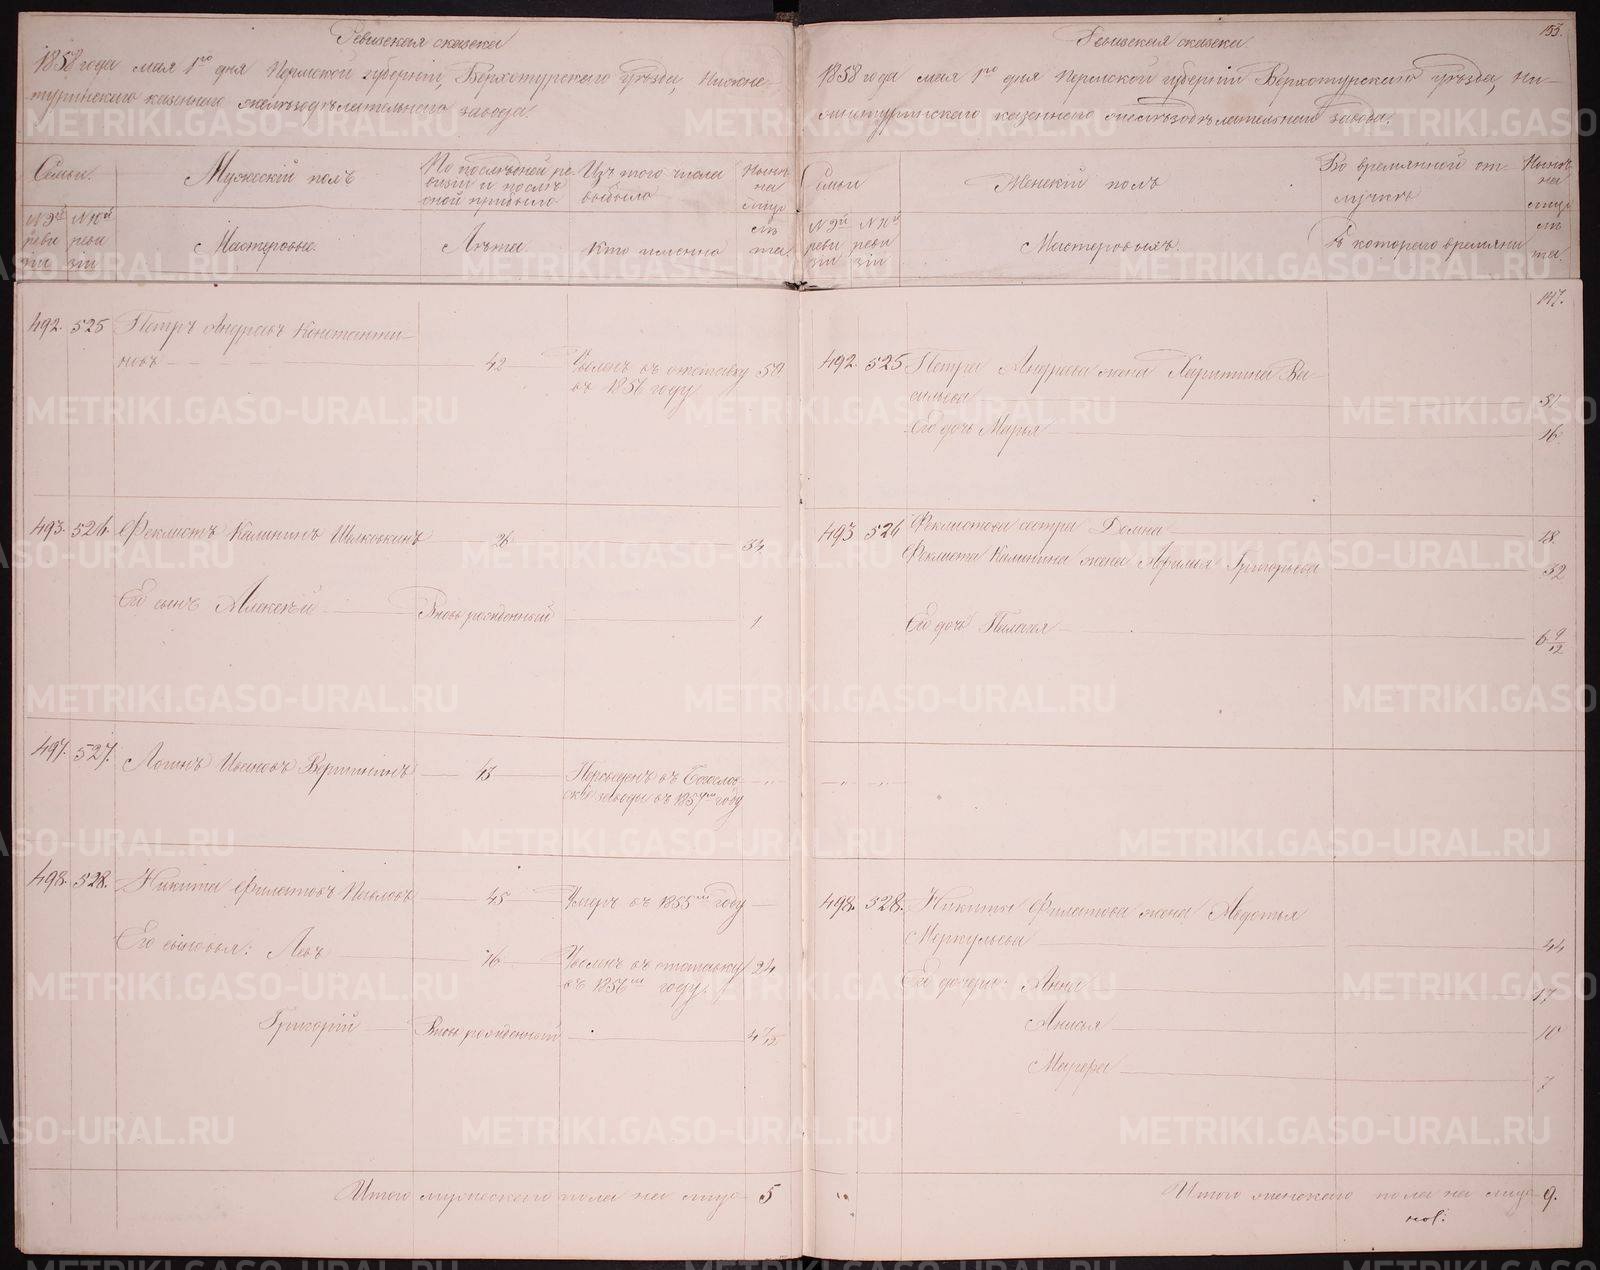 Ревизская сказка
1858 года мая 1го дня Пермской губернiи, Верхотурскаго уѣзда, Нижне-
туринскаго казеннаго желѣзодѣлательнаго завода.
Семьи.
Мужескiй полъ
По послѣдней ре-
визiи и послѣ
оной прибыло
Изъ того числа
выбыло
Нынѣ
на
лицо
№ 9й
реви
зiи
№ 10й
реви
зiи
Мастеровые.
Лѣта
Кто именно
лѣ
та.
492. 525 Петръ Андреевъ Константи-
новъ 42 Уволенъ въ отставку 50
въ 1856 году
493. 526. Феклистъ Калининъ Шелковкинъ 26 34
Его сынъ Алексѣй Вновь рожденный 1
497. 527. Логинъ Ивановъ Вершининъ 43 Переведенъ въ Богослов-
скiе заводы въ 1857м году
498. 528. Никита Филатовъ Павловъ 45 Умеръ въ 1855м году
Его сыновья: Левъ 16 Уволенъ въ отставку 24
въ 1856м году.
Григорiй Вновь рожденный 4 7/12
Итого мужескаго пола на лицо 5
153.
Ревизская сказка.
1858 года мая 1го дня Пермской губернiи Верхотурскаго уѣзда, Ни-
жнетуринскаго казеннаго желѣзодѣлательнаго завода.
Семьи
Женскiй полъ
Во временной от-
лучкѣ
Нынѣ
на
лицо
№ 9й
реви
зiи
№ 10й
реви
зiи
Мастеровыхъ.
Съ котораго времяни
лѣ
та.
147.
492. 525 Петра Андреева жена Харитина Ва-
сильева 51
Его дочь Марья 16
493 526 Феклистова сестра Домна 18
Феклиста Калинина жена Афимья Григорьева 32
Его дочь Пелагея 6 9/12
498. 528. Никиты Филатова жена Авдотья
Меркульева 44
Его дочери: Анна 17
Анисья 10
Марфа 7
Итого женскаго пола на лицо 9.
METRIKI.GASO-URAL.RU